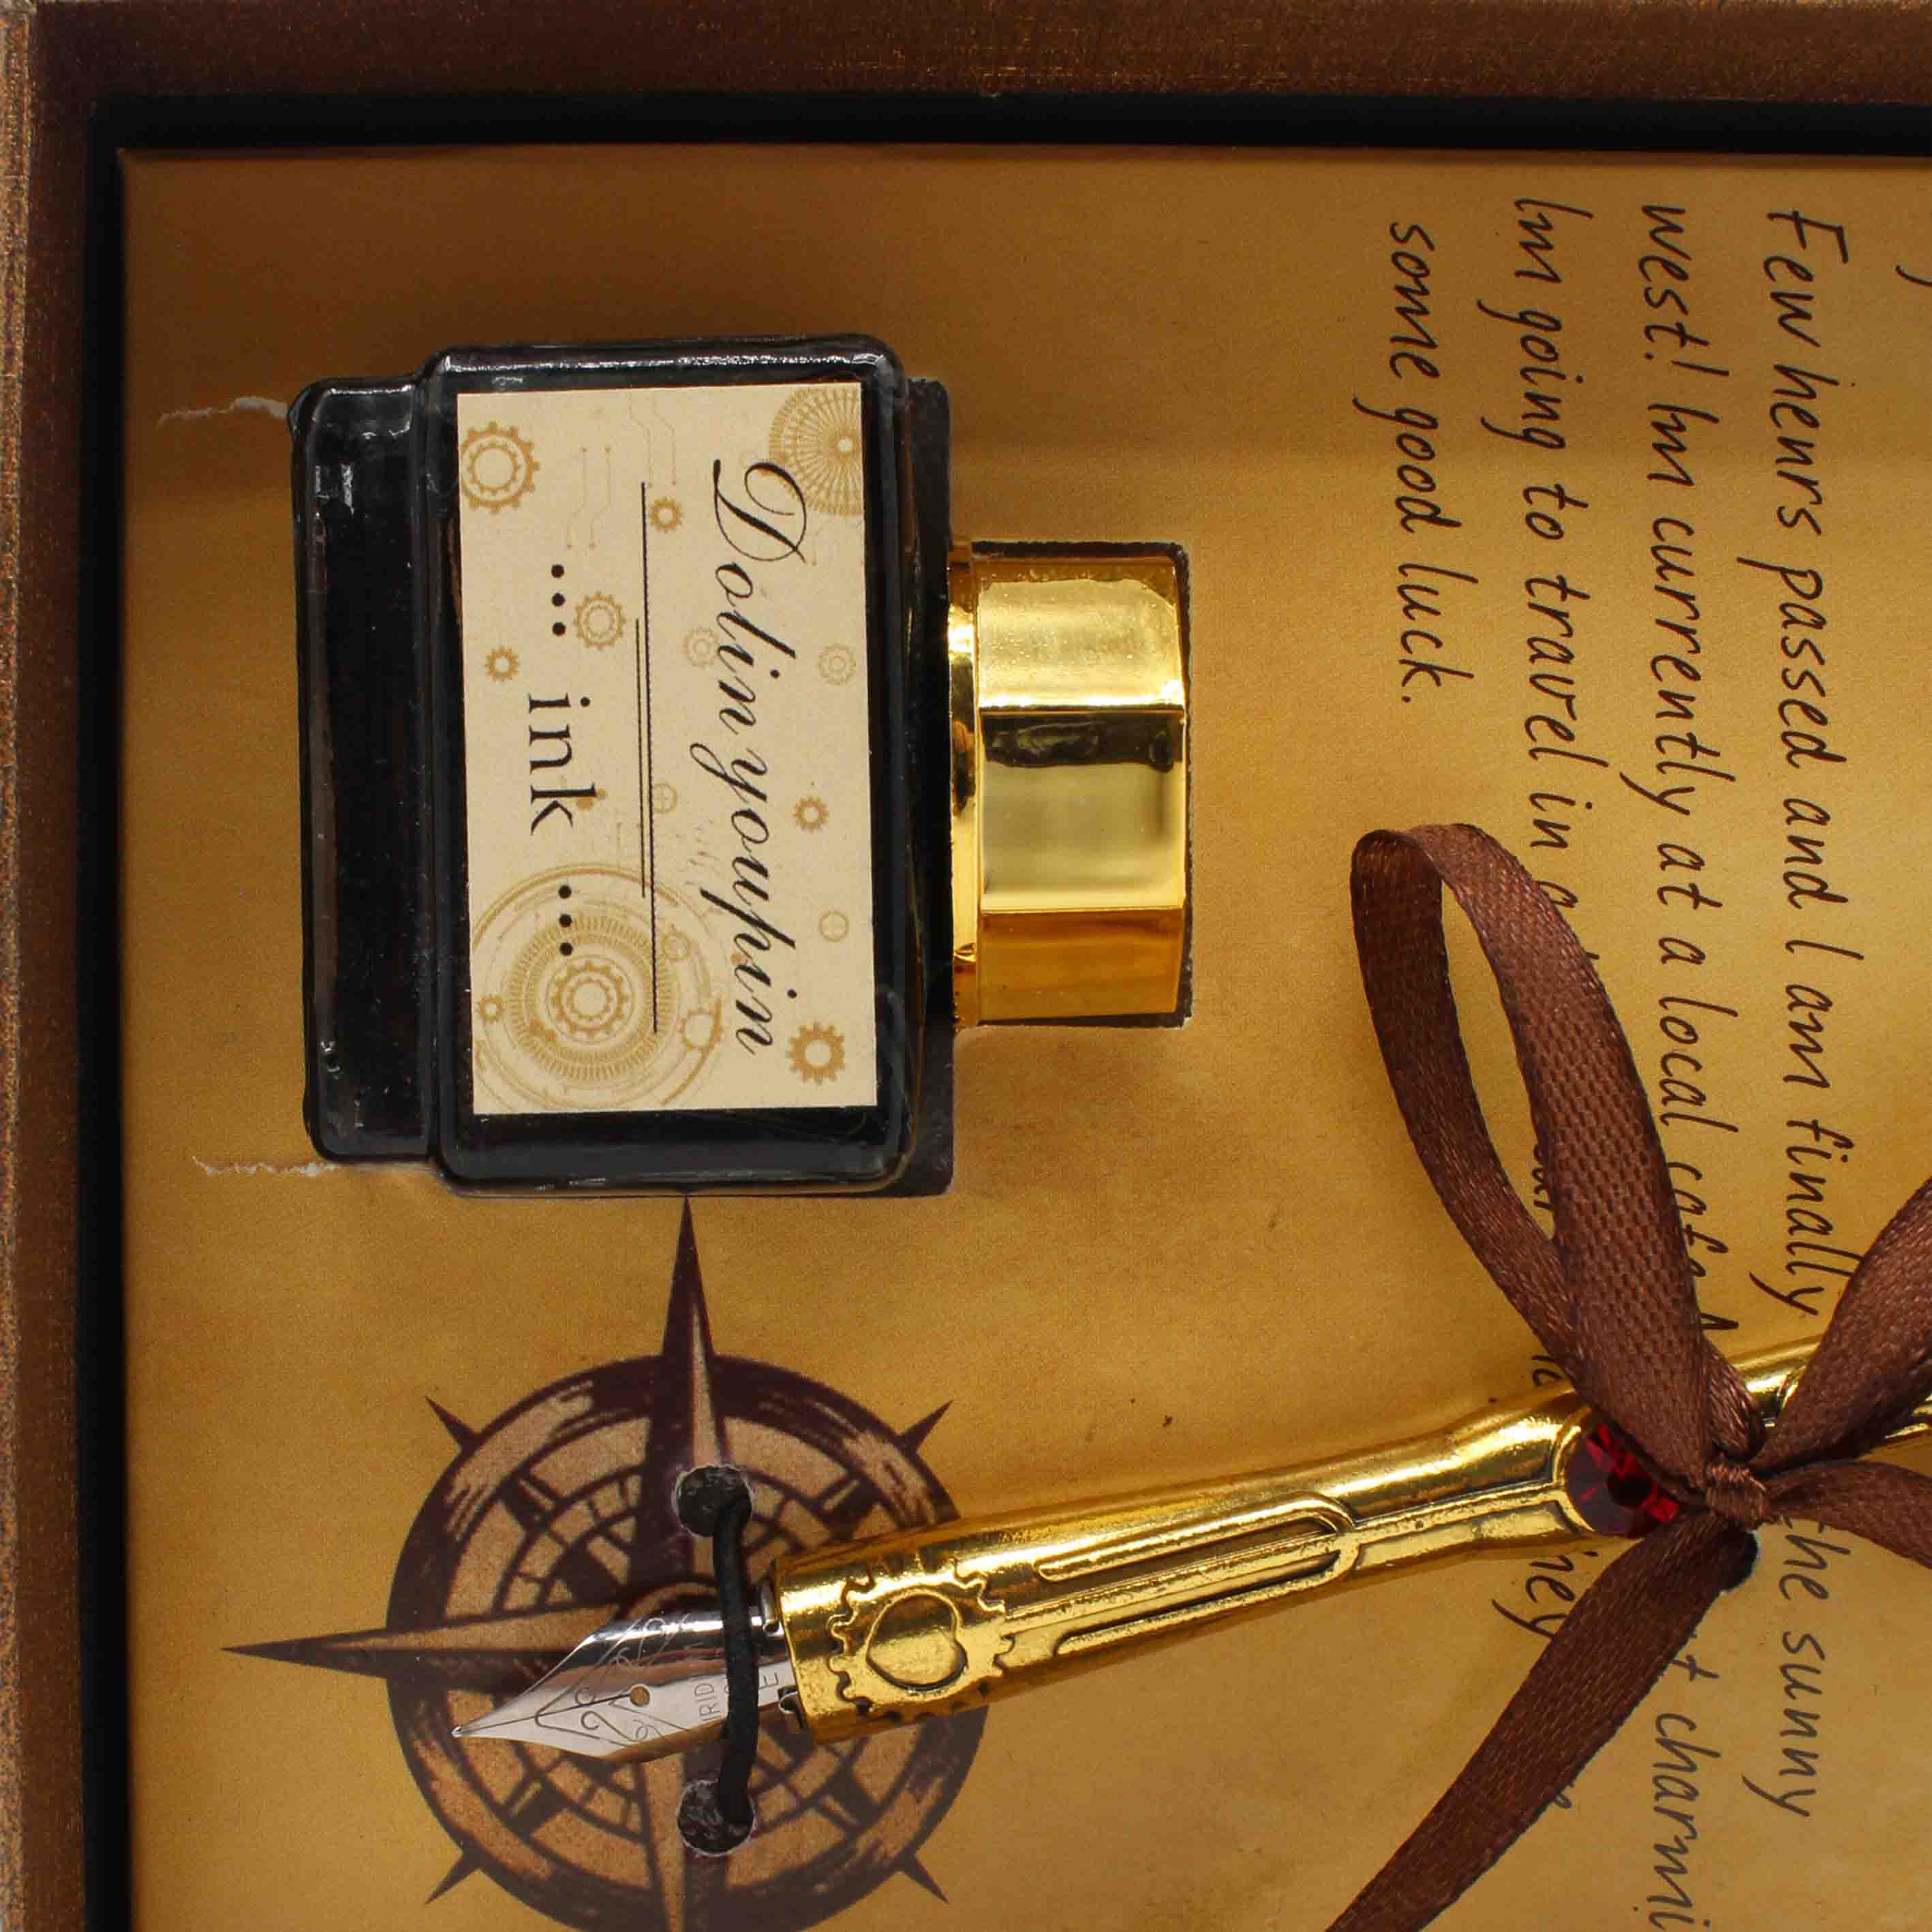 Few henrs passed and I am finally the sunny
west! Im currently at a local cafe charmi
Im going to travel in a they
some good luck.
Dolin youpin
... ink ...
IRID